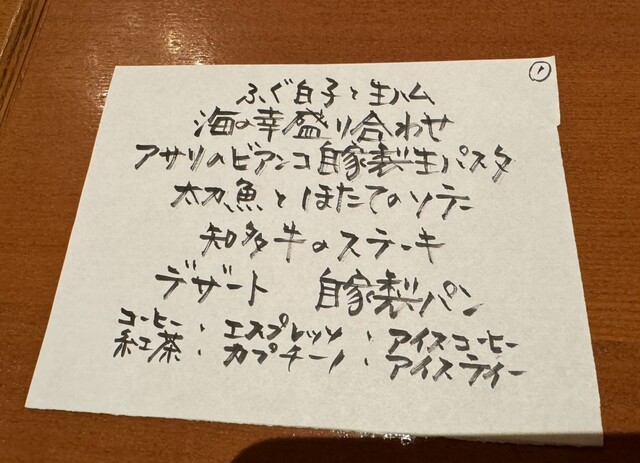 ①
ふぐ白子と生ハム
海の幸盛り合わせ
アサリのビアンコ自家製生パスタ
太刀魚とほたてのソテー
知多牛のステーキ
デザート 自家製パン
コーヒー : エスプレッソ : アイスコーヒー
紅茶 : カプチーノ : アイスティー